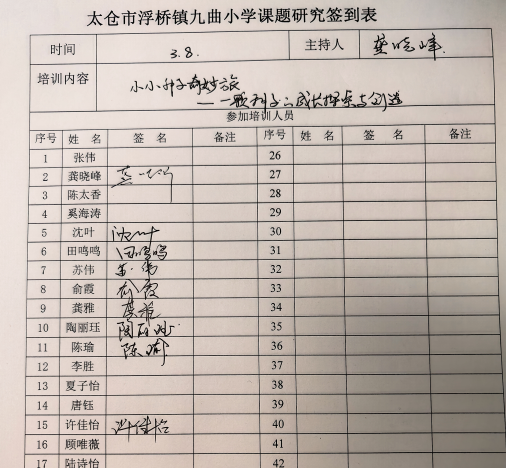 太仓市浮桥镇九曲小学课题研究签到表
时间 3.8. 主持人 龚晓峰
培训内容 小小种子奇妙旅
——一颗种子的成长探索与创造
参加培训人员
序号 姓 名 签 名 备注 序号 姓 名 签 名 备注
1 张伟 26
2 龚晓峰 27
3 陈太香 28
4 奚海涛 29
5 沈叶 沈叶 30
6 田鸣鸣 田鸣鸣 31
7 苏伟 苏伟 32
8 俞霞 俞霞 33
9 龚雅 龚雅 34
10 陶丽珏 陶丽珏 35
11 陈瑜 陈瑜 36
12 李胜 37
13 夏子怡 38
14 唐钰 39
15 许佳怡 许佳怡 40
16 顾唯薇 41
17 陆诗怡 42